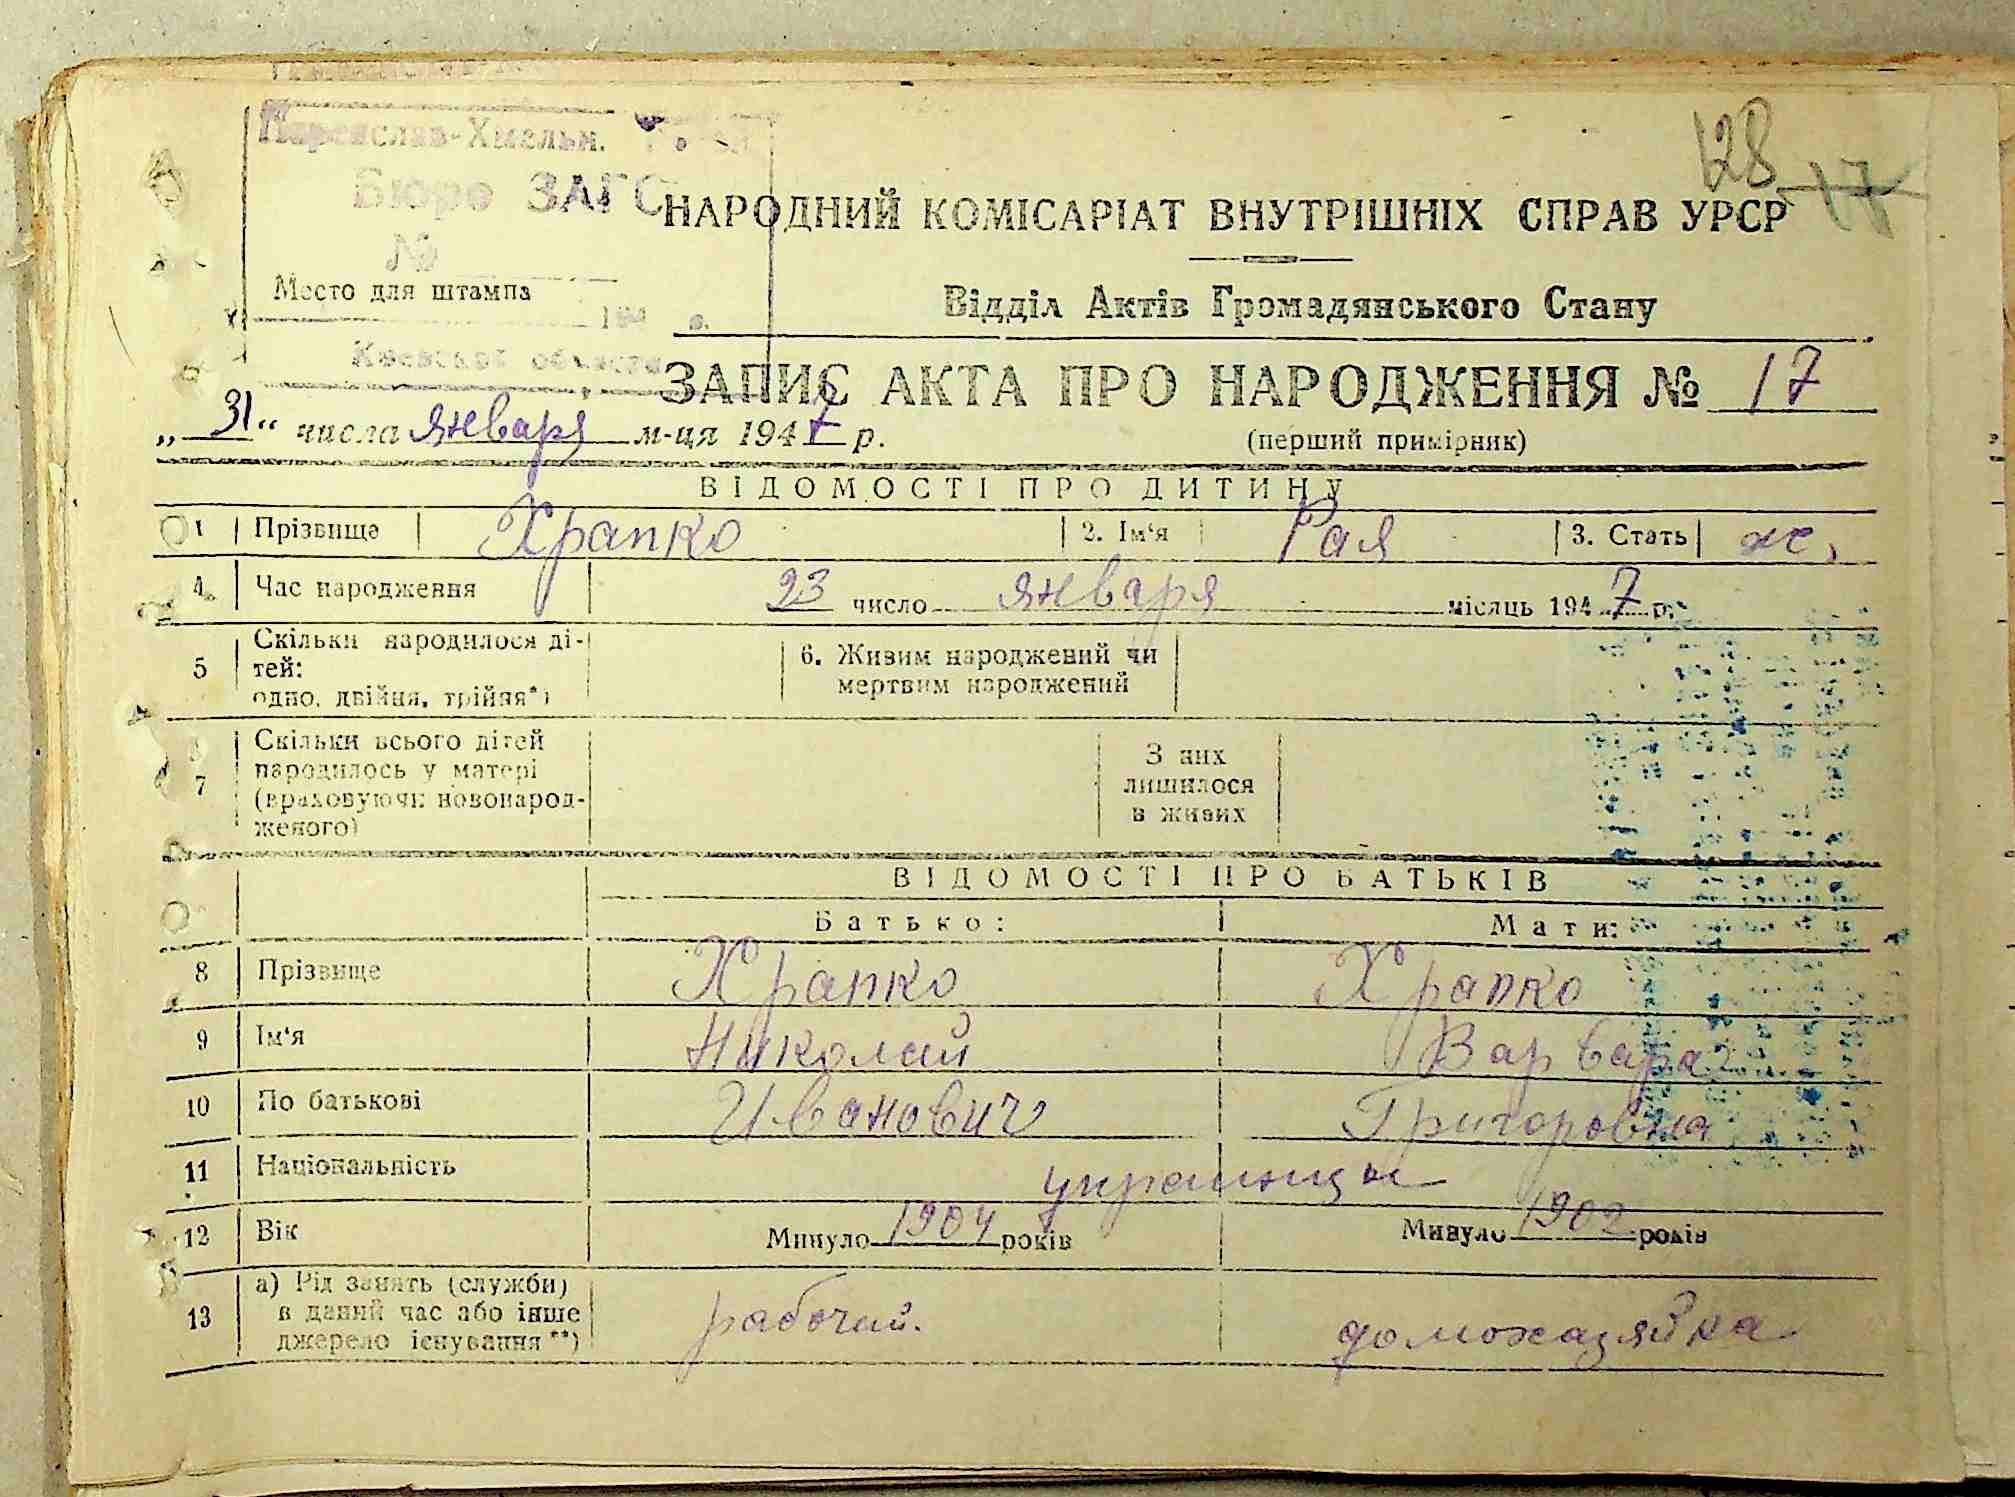 128
17
Переяслав-Хмельн.
Бюро ЗАГС
№
Место для штампа
194 г.
Киевской области
НАРОДНИЙ КОМІСАРІАТ ВНУТРІШНІХ СПРАВ УРСР
Відділ Актів Громадянського Стану
ЗАПИС АКТА ПРО НАРОДЖЕННЯ № 17
„31“ числа января м-ця 1947 р.
(перший примірник)
ВІДОМОСТІ ПРО ДИТИНУ
1 Прізвище Храпко 2. Ім'я Рая 3. Стать ж.
4. Час народження 23 число января місяць 1947 р.
5 Скільки народилося ді-
тей:
одно, двійня, трійня*)
6. Живим народжений чи
мертвим народжений
7 Скільки всього дітей
народилось у матері
(враховуючи новонарод-
женого)
З них
лишилося
в живих
ВІДОМОСТІ ПРО БАТЬКІВ
Батько: Мати:
8 Прізвище Храпко Храпко
9 Ім'я Николай Варвара
10 По батькові Иванович Григоровна
11 Національність украинцы
12 Вік Минуло 1904 років Минуло 1902 років
13 а) Рід занять (служби)
в даний час або інше
джерело існування**)
рабочий. домохазяйка